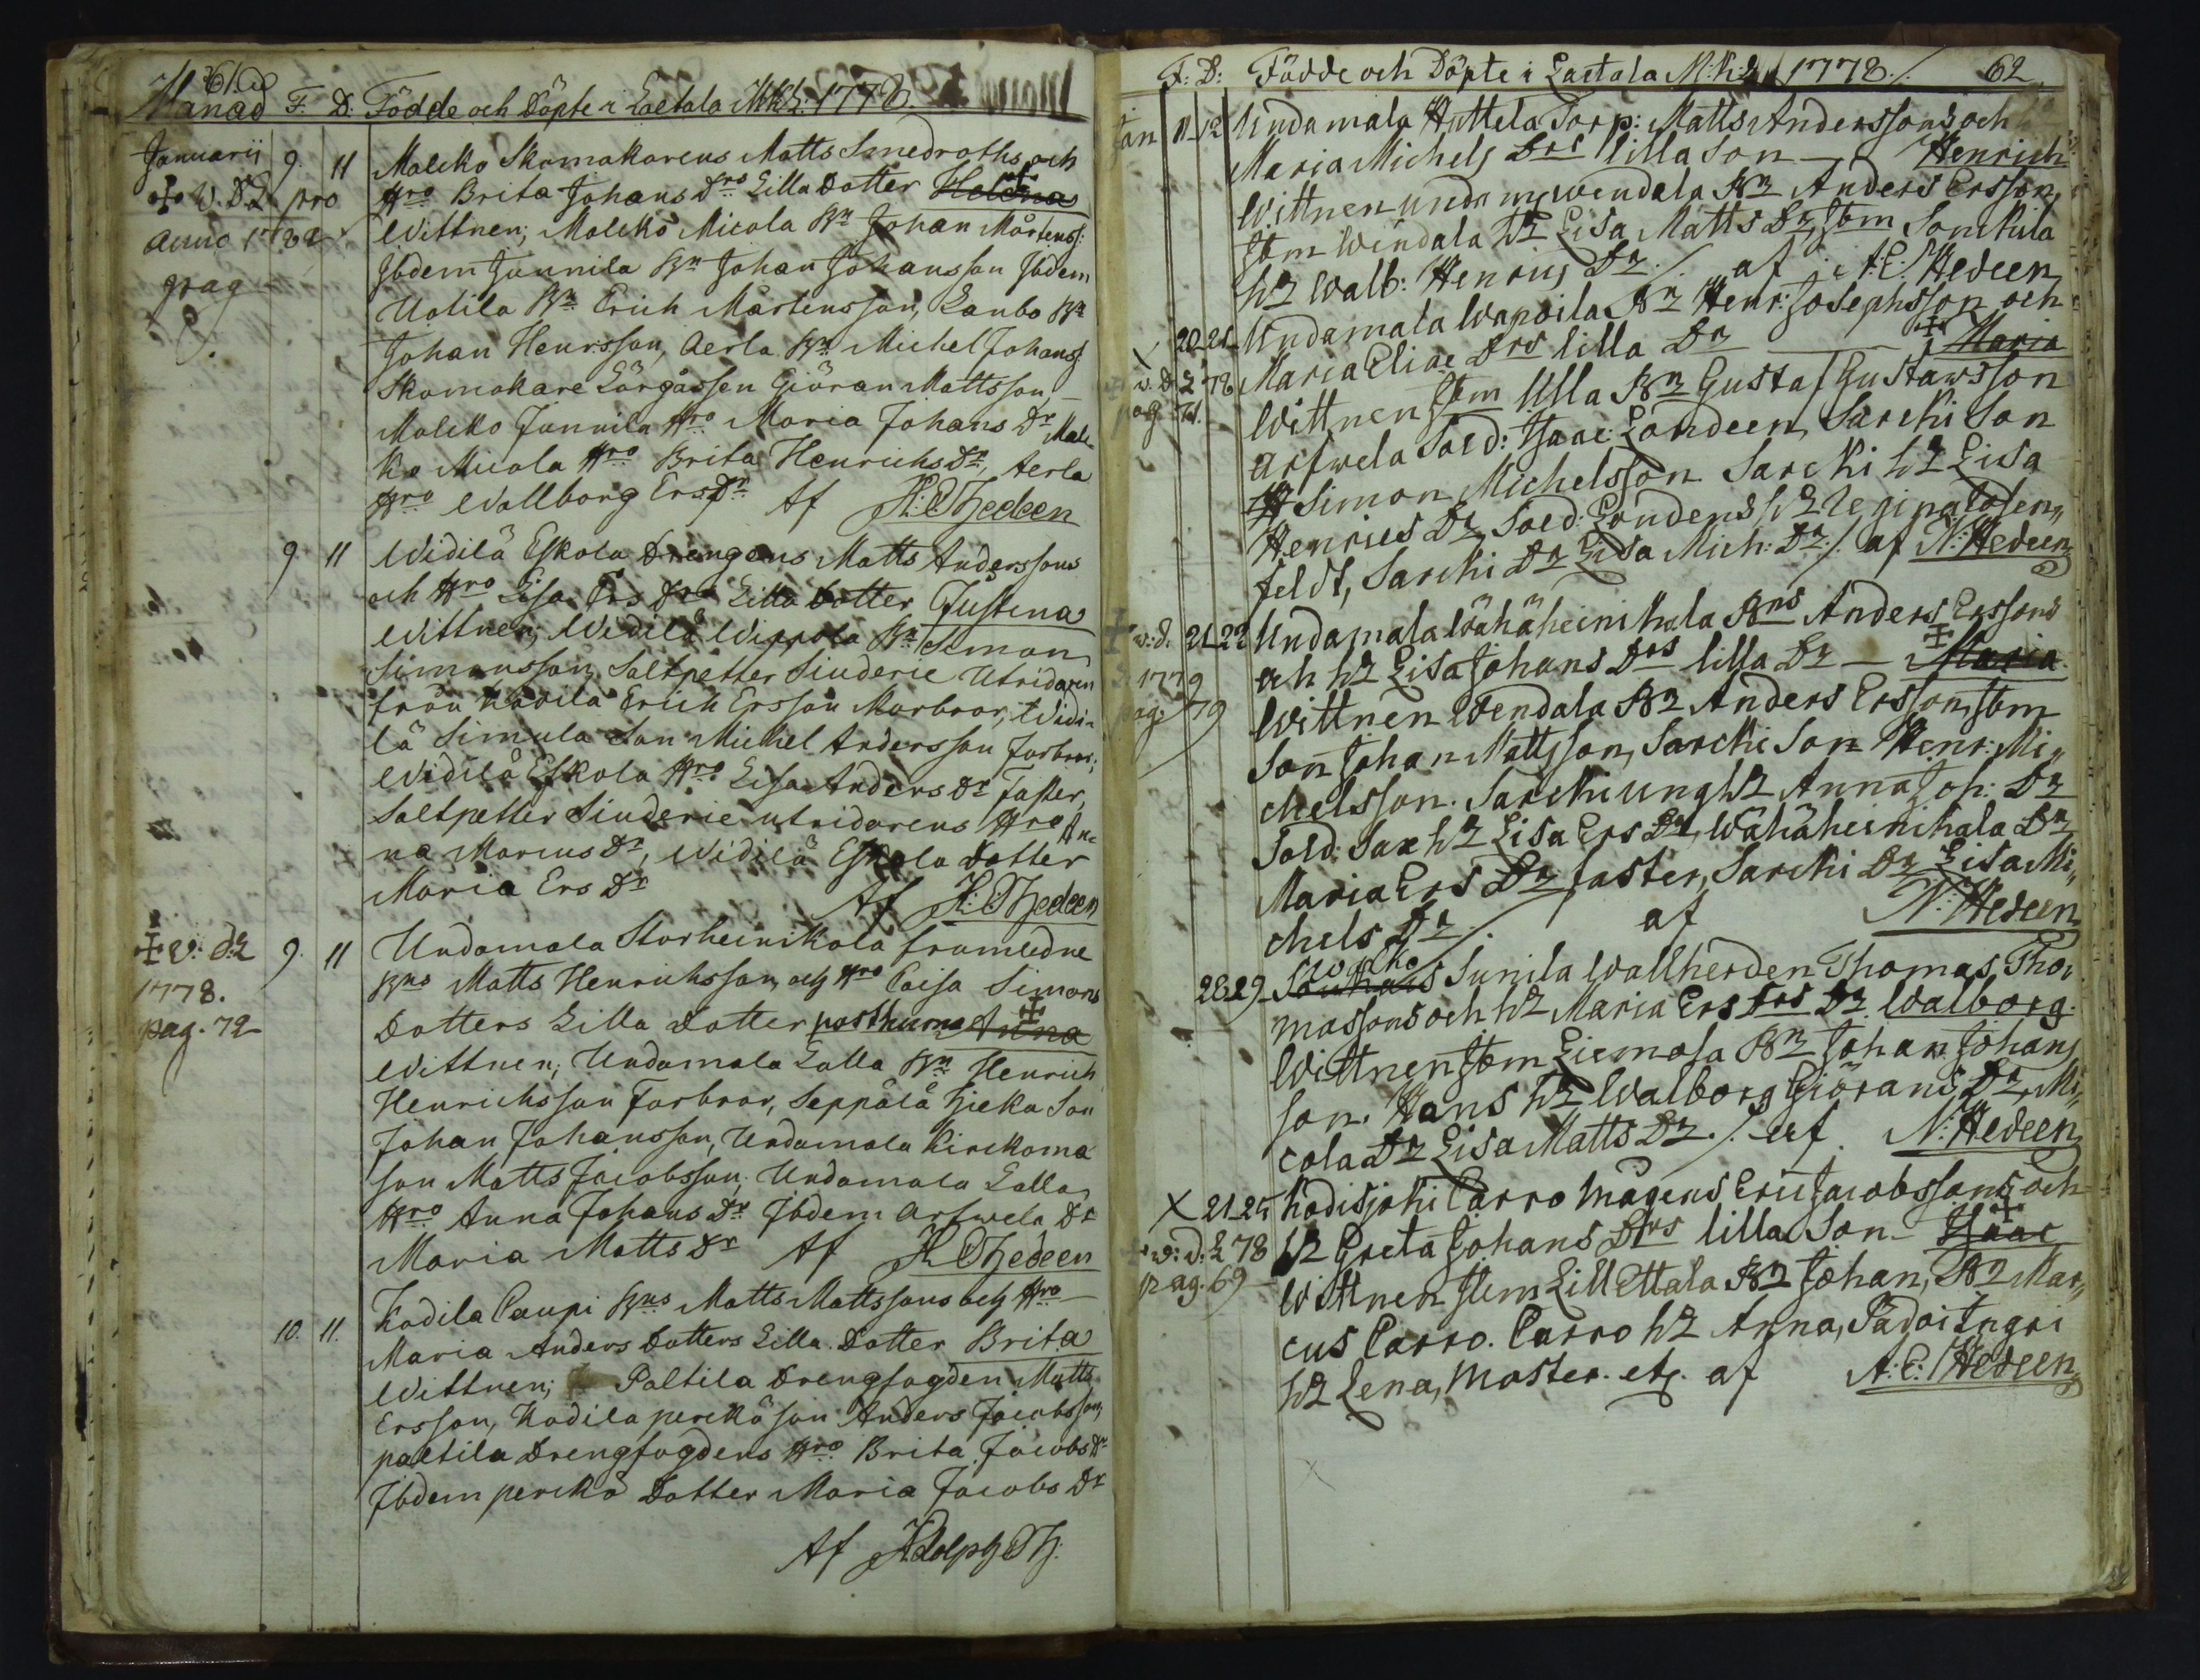 61.
Månad F. D. Födde och Döpte i Laetala MKL: 1778.
Januarii 9. 11 Maleko Skomakarens Matts Smedroths och
W. D L pro Hro Brita Johans Drs Lilla Dotter Helena
anno 1782 Wittnen; Maleko Micola Bn Johan Mårtenss:
pag Jbdem Junnila Bn Johan Johansson Jbdem
Uotila Bn Erich Mårtensson, Laubo Bn
Johan Henrsson, Aerla Bn Michel Johanss:
Skomakare Lärgåssen Giöran Mattsson,
Maleko Junnila Hro Maria Johans Dr Male
ko Micola Hro Brita Henrichs Dr, Aerla
Hro Wallborg Ers Dr Af A: C Hedeen
9 11 Widilä Eskola Drengens Matts Anderssons
och Hro Lisa Ers Drs Lilla Dotter Justina
Wittnen; Widilä Wippola Bn Simon
Simonsson, Saltpetter Siuderie Utridaren
från Kodila Erich Ersson Morbror, Widi-
lä Simula Son Michel Andersson Farbror;
Widilä Eskola Hro Lisa Anders Dr Faster,
Saltpetter Siuderie utridarens Hro An-
na Marcus Dr, Widilä Eskola Dotter
Maria Ers Dr Af A: C Hedeen
w: d: L 9. 11 Undamala Storheinikala framledne
1778. Bns Matts Henrichsson och Hro Caisa Simons
pag. 72 Dotters Lilla Dotter posthuma Anna
Wittnen; Undamala Lalla Bn Henrich
Henrichsson Farbror, Seppälä Hieka Son
Johan Johansson, Undamala Kirckoma
son Matts Jacobsson; Undamala Lalla
Hro Anna Johans Dr Jbdem Arfwela Dr
Maria Matts Dr Af A. C Hedeen
10. 11. Kodila Caupi Bns Matts Mattssons och Hro
Maria Anders Dotters Lilla Dotter Brita
Wittnen; Paltila Drengfogden Matts
Ersson, Kodila perckö son Anders Jacobsson,
paltila Drengfogdens Hro Brita Jacobs Dr
Jbdem perckö Dotter Maria Jacobs Dr
Af Adolph H.
F: D: Födde och Döpte i Laetala M:K:L 1778./. 62
Jan 11 12 Undamala Huttela Torp: Matts Anderssons och
Maria Michels Drs lilla Son Henrich
Wittnen undam wendala Bn Anders Ersson,
Jbm Wendala h Lisa Matts Dr, Jbm Son
h Walb: Henrics Dr ./. af A: C: Hedeen
20 21 Undamala Wapoila Bn Henr: Josephsson och
w. d L 78 Maria Eliae Drs lilla Dr Maria
pag 71. Wittnen Jbm Ulla Bn Gustaf Gustawsson
Arfwela Sold: Isaac Londeen, Sarcki Son
Simon Michelsson Sarcki h Lisa
Henrics Dr, Sold: Londens h
feldt, Sarcki Dr Lisa Mich: Dr ./. af N: Hedeen
w: d. 21 22 Undamala Wähäheinikala Bns Anders Erssons
L 1779 och h Lisa Johans Drs lilla Dr Maria
pag 79 Wittnen Wendala Bn Anders Ersson, Jbm
Son Johan Mattsson, Sarcki Son Henr: Mi
chelsson. Sarcki ung h Anna Joh: Dr
Sold: Sax h Lisa Ers Dr, Wähäheinikala Dr
Maria Ers Dr faster, Sarcki Dr Lisa Mi
chels Dr ./. af N: Hedeen
28 29 Sunila Wallherden Thomas Tho
massons och h Maria Ers Drs Dr Walborg
Wittnen Jbm Liemola Bn Johan Johans
son. Hans h Walborg Giörans Dr, Mi
cola Dr Lisa Matts Dr ./. af N: Hedeen
21 25 Kodisjoki Carro Mågens Eric Jacobssons och
w: d: L 78 h Greta Johans Drs lilla Son Isaac
pag. 69 Wittnen Jbm Lill Ettala Bn Johan, Bn Mar
cus Carro. Carro h Anna, Padoi Ingri
h Lena, Moster. etc. af A: C: Hedeen